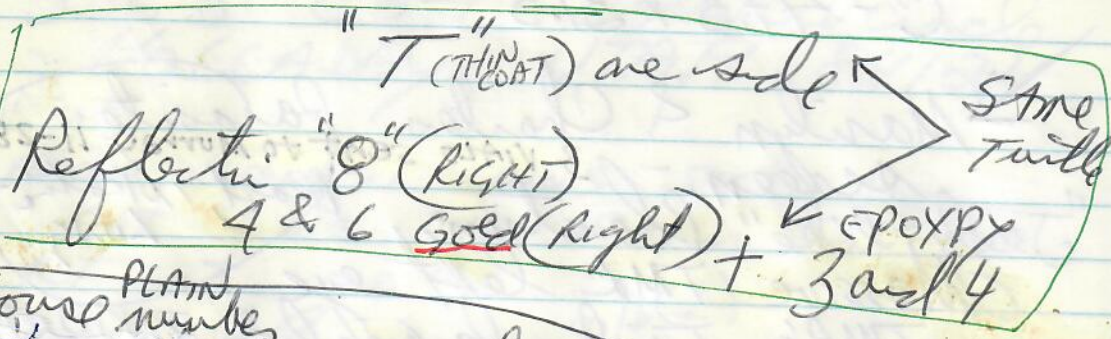 "T" (THIN COAT) one side
Same Turtle
Reflectin "8" (RIGHT)
4 & 6 Gold (Right) + EPOXPY 3 and 4
PLAIN
ouse number